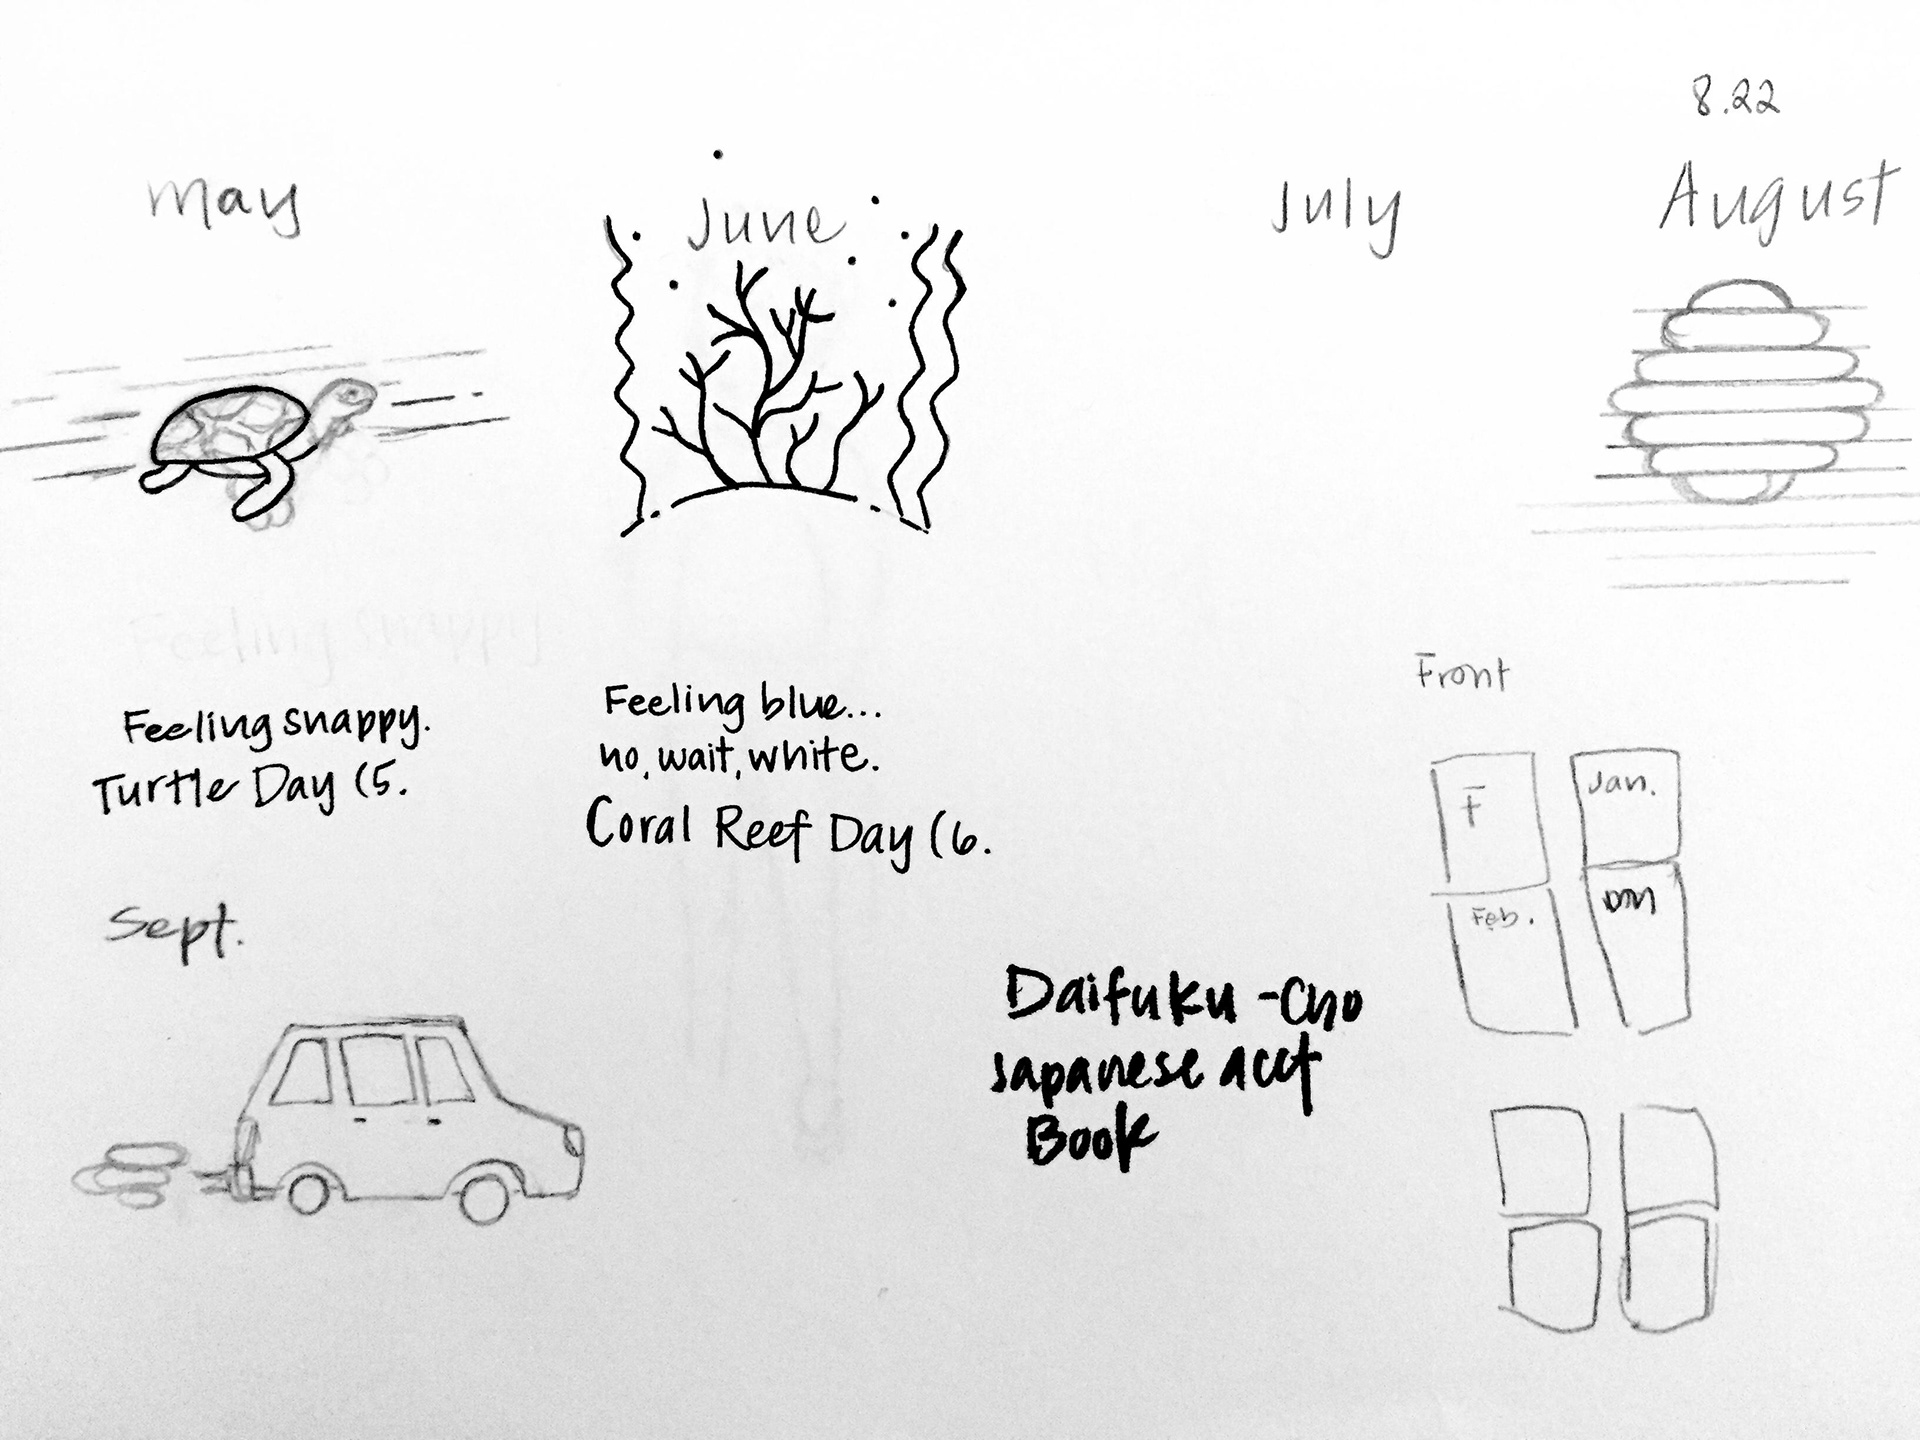 8.22
May
June
July
August
Feeling snappy
Feeling snappy.
Turtle Day (5.
Feeling blue...
no, wait, white.
Coral Reef Day (6.
Front
F
Jan.
Feb.
Sept.
Daifuku-Cho
Japanese acct
Book